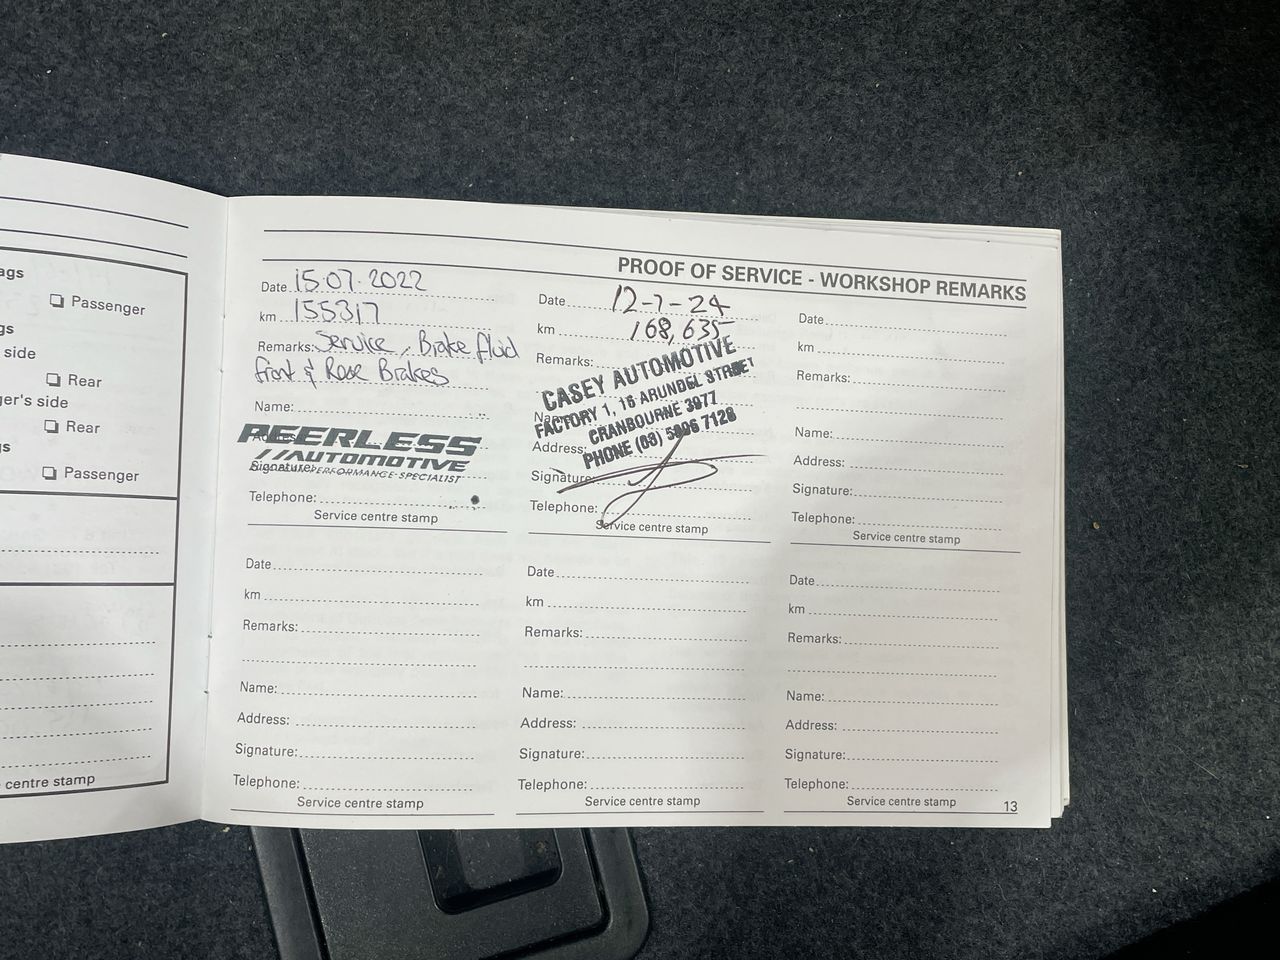 ags
❏ Passenger
gs
side
❏ Rear
ger's side
❏ Rear
gs
❏ Passenger
centre stamp
PROOF OF SERVICE - WORKSHOP REMARKS
Date 15.07.2022
km 155317
Remarks: Service, Brake fluid
front & Rose Brakes
Name:
Address:
PEERLESS
//AUTOMOTIVE
PERFORMANCE SPECIALIST
Signature:
Telephone:
Service centre stamp
Date 12-7-24
km 168,635
Remarks:
CASEY AUTOMOTIVE
FACTORY 1, 16 ARUNDEL STREET
CRANBOURNE 3977
PHONE (03) 5996 7128
Name:
Address:
Signature:
Telephone:
Service centre stamp
Date
km
Remarks:
Name:
Address:
Signature:
Telephone:
Service centre stamp
Date
km
Remarks:
Name:
Address:
Signature:
Telephone:
Service centre stamp
Date
km
Remarks:
Name:
Address:
Signature:
Telephone:
Service centre stamp
Date
km
Remarks:
Name:
Address:
Signature:
Telephone:
Service centre stamp
13